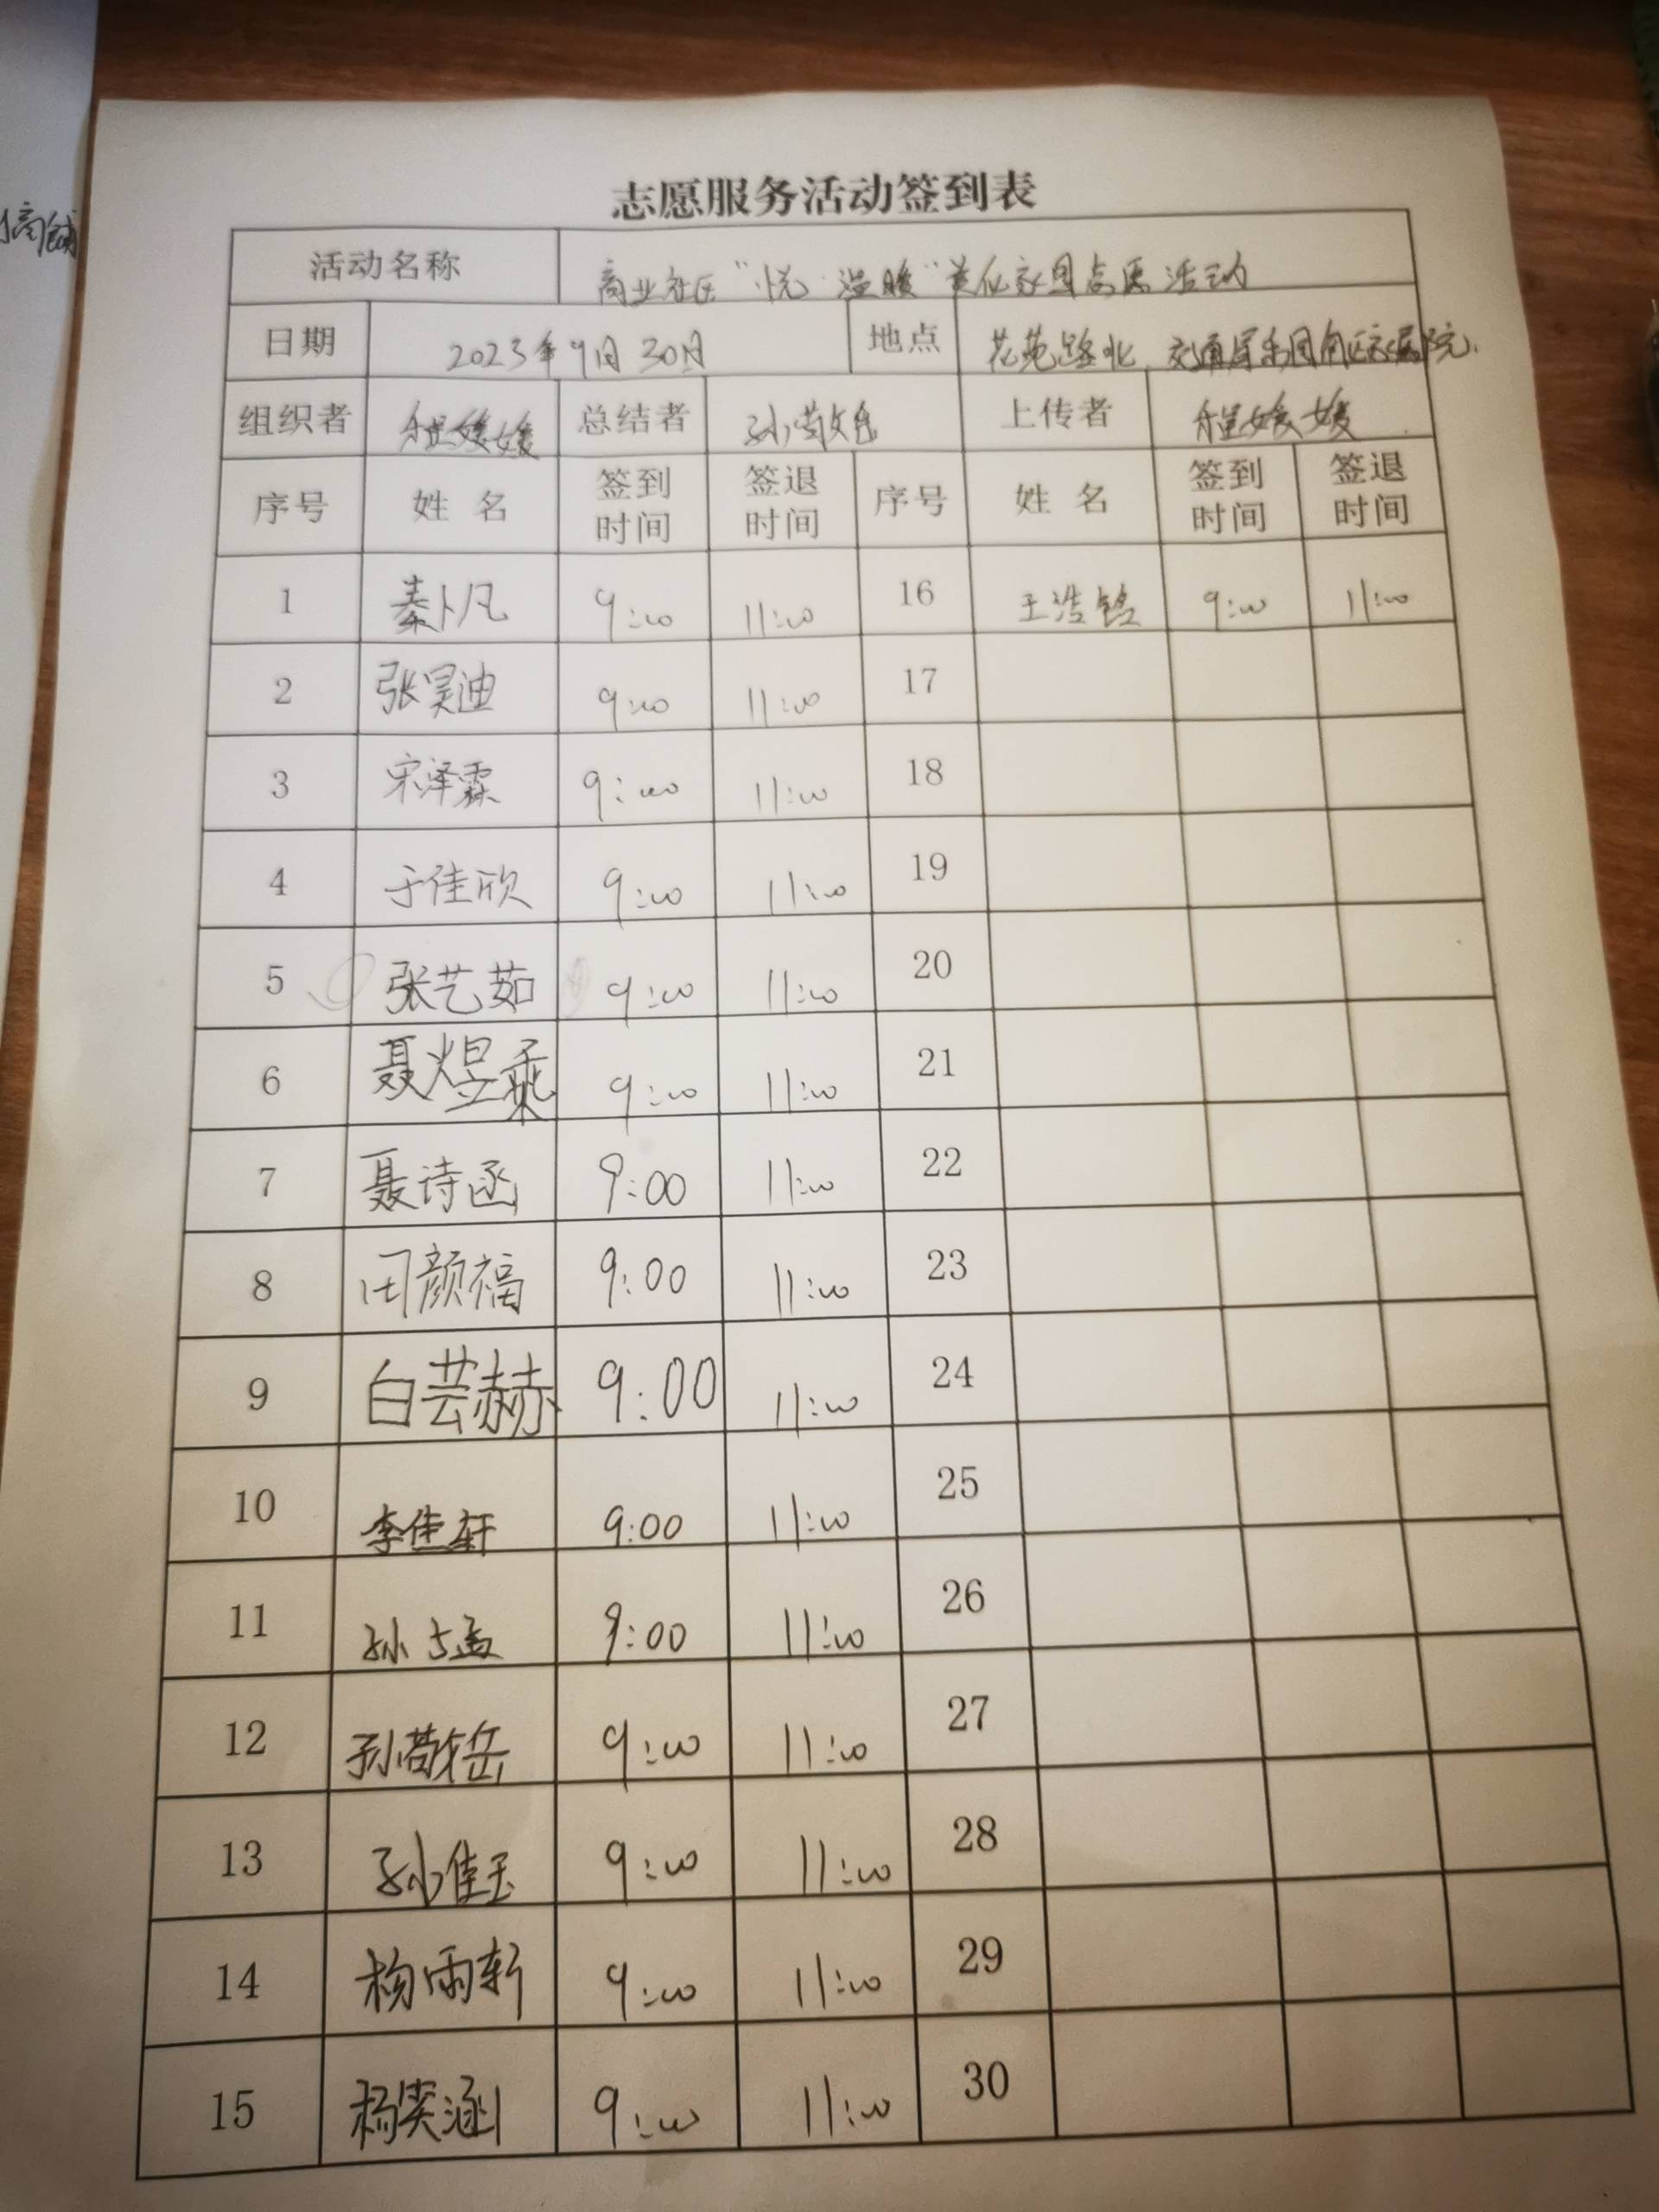 志愿服务活动签到表
活动名称 商业社区“悦·温暖”美化家园志愿活动
日期 2023年9月30日 地点 花苑路北
组织者 程媛媛 总结者 孙敬岳 上传者 程媛媛
序号 姓名 签到时间 签退时间 序号 姓名 签到时间 签退时间
1 秦卜凡 9:00 11:00 16 王浩铭 9:00 11:00
2 张昊迪 9:00 11:00 17
3 宋泽霖 9:00 11:00 18
4 于佳欣 9:00 11:00 19
5 张艺茹 9:00 11:00 20
6 聂煜乘 9:00 11:00 21
7 聂诗函 9:00 11:00 22
8 田颜福 9:00 11:00 23
9 白芸赫 9:00 11:00 24
10 李佳轩 9:00 11:00 25
11 孙 9:00 11:00 26
12 孙敬岳 9:00 11:00 27
13 孙佳玉 9:00 11:00 28
14 杨雨轩 9:00 11:00 29
15 杨奕涵 9:00 11:00 30